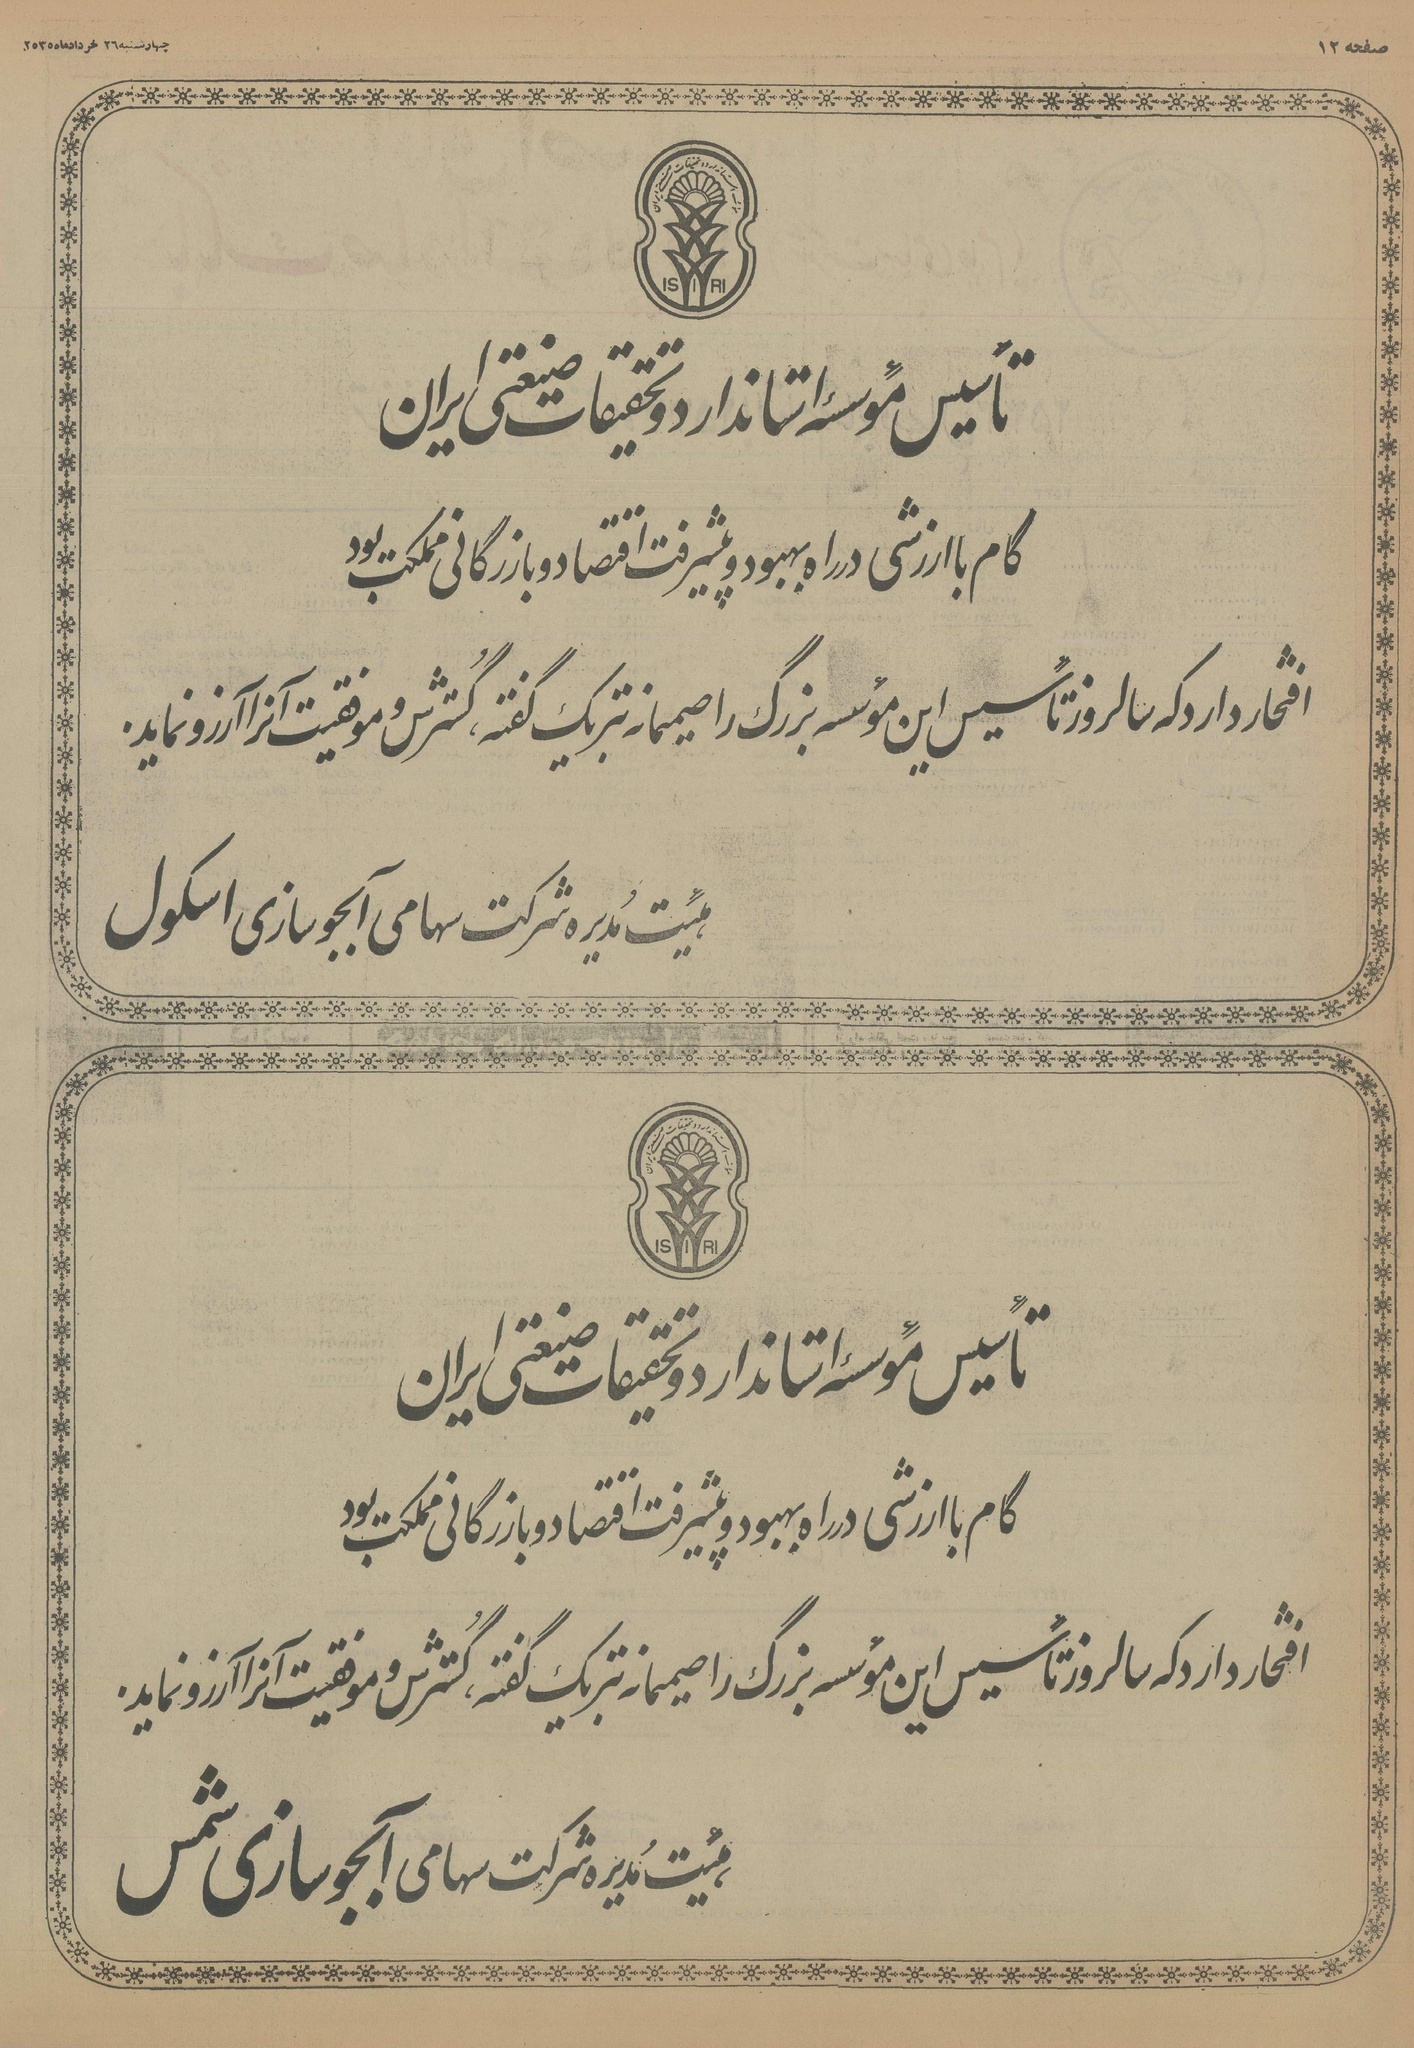 صفحه ۱۲
چهارشنبه ۲۶ خردادماه ۲۵۳۵
ISIRI
تأسیس مؤسسه استاندارد و تحقیقات صنعتی ایران
گام با ارزشی در راه بهبود و پیشرفت اقتصاد و بازرگانی مملکت بود
افتخار دارد که سالروز تأسیس این مؤسسه بزرگ را صمیمانه تبریک گفته، گسترش و موفقیت آنرا آرزو نماید.
هیئت مُدیره شرکت سهامی آبجو سازی اسکول
ISIRI
تأسیس مؤسسه استاندارد و تحقیقات صنعتی ایران
گام با ارزشی در راه بهبود و پیشرفت اقتصاد و بازرگانی مملکت بود
افتخار دارد که سالروز تأسیس این مؤسسه بزرگ را صمیمانه تبریک گفته، گسترش و موفقیت آنرا آرزو نماید.
هیئت مُدیره شرکت سهامی آبجو سازی شمس